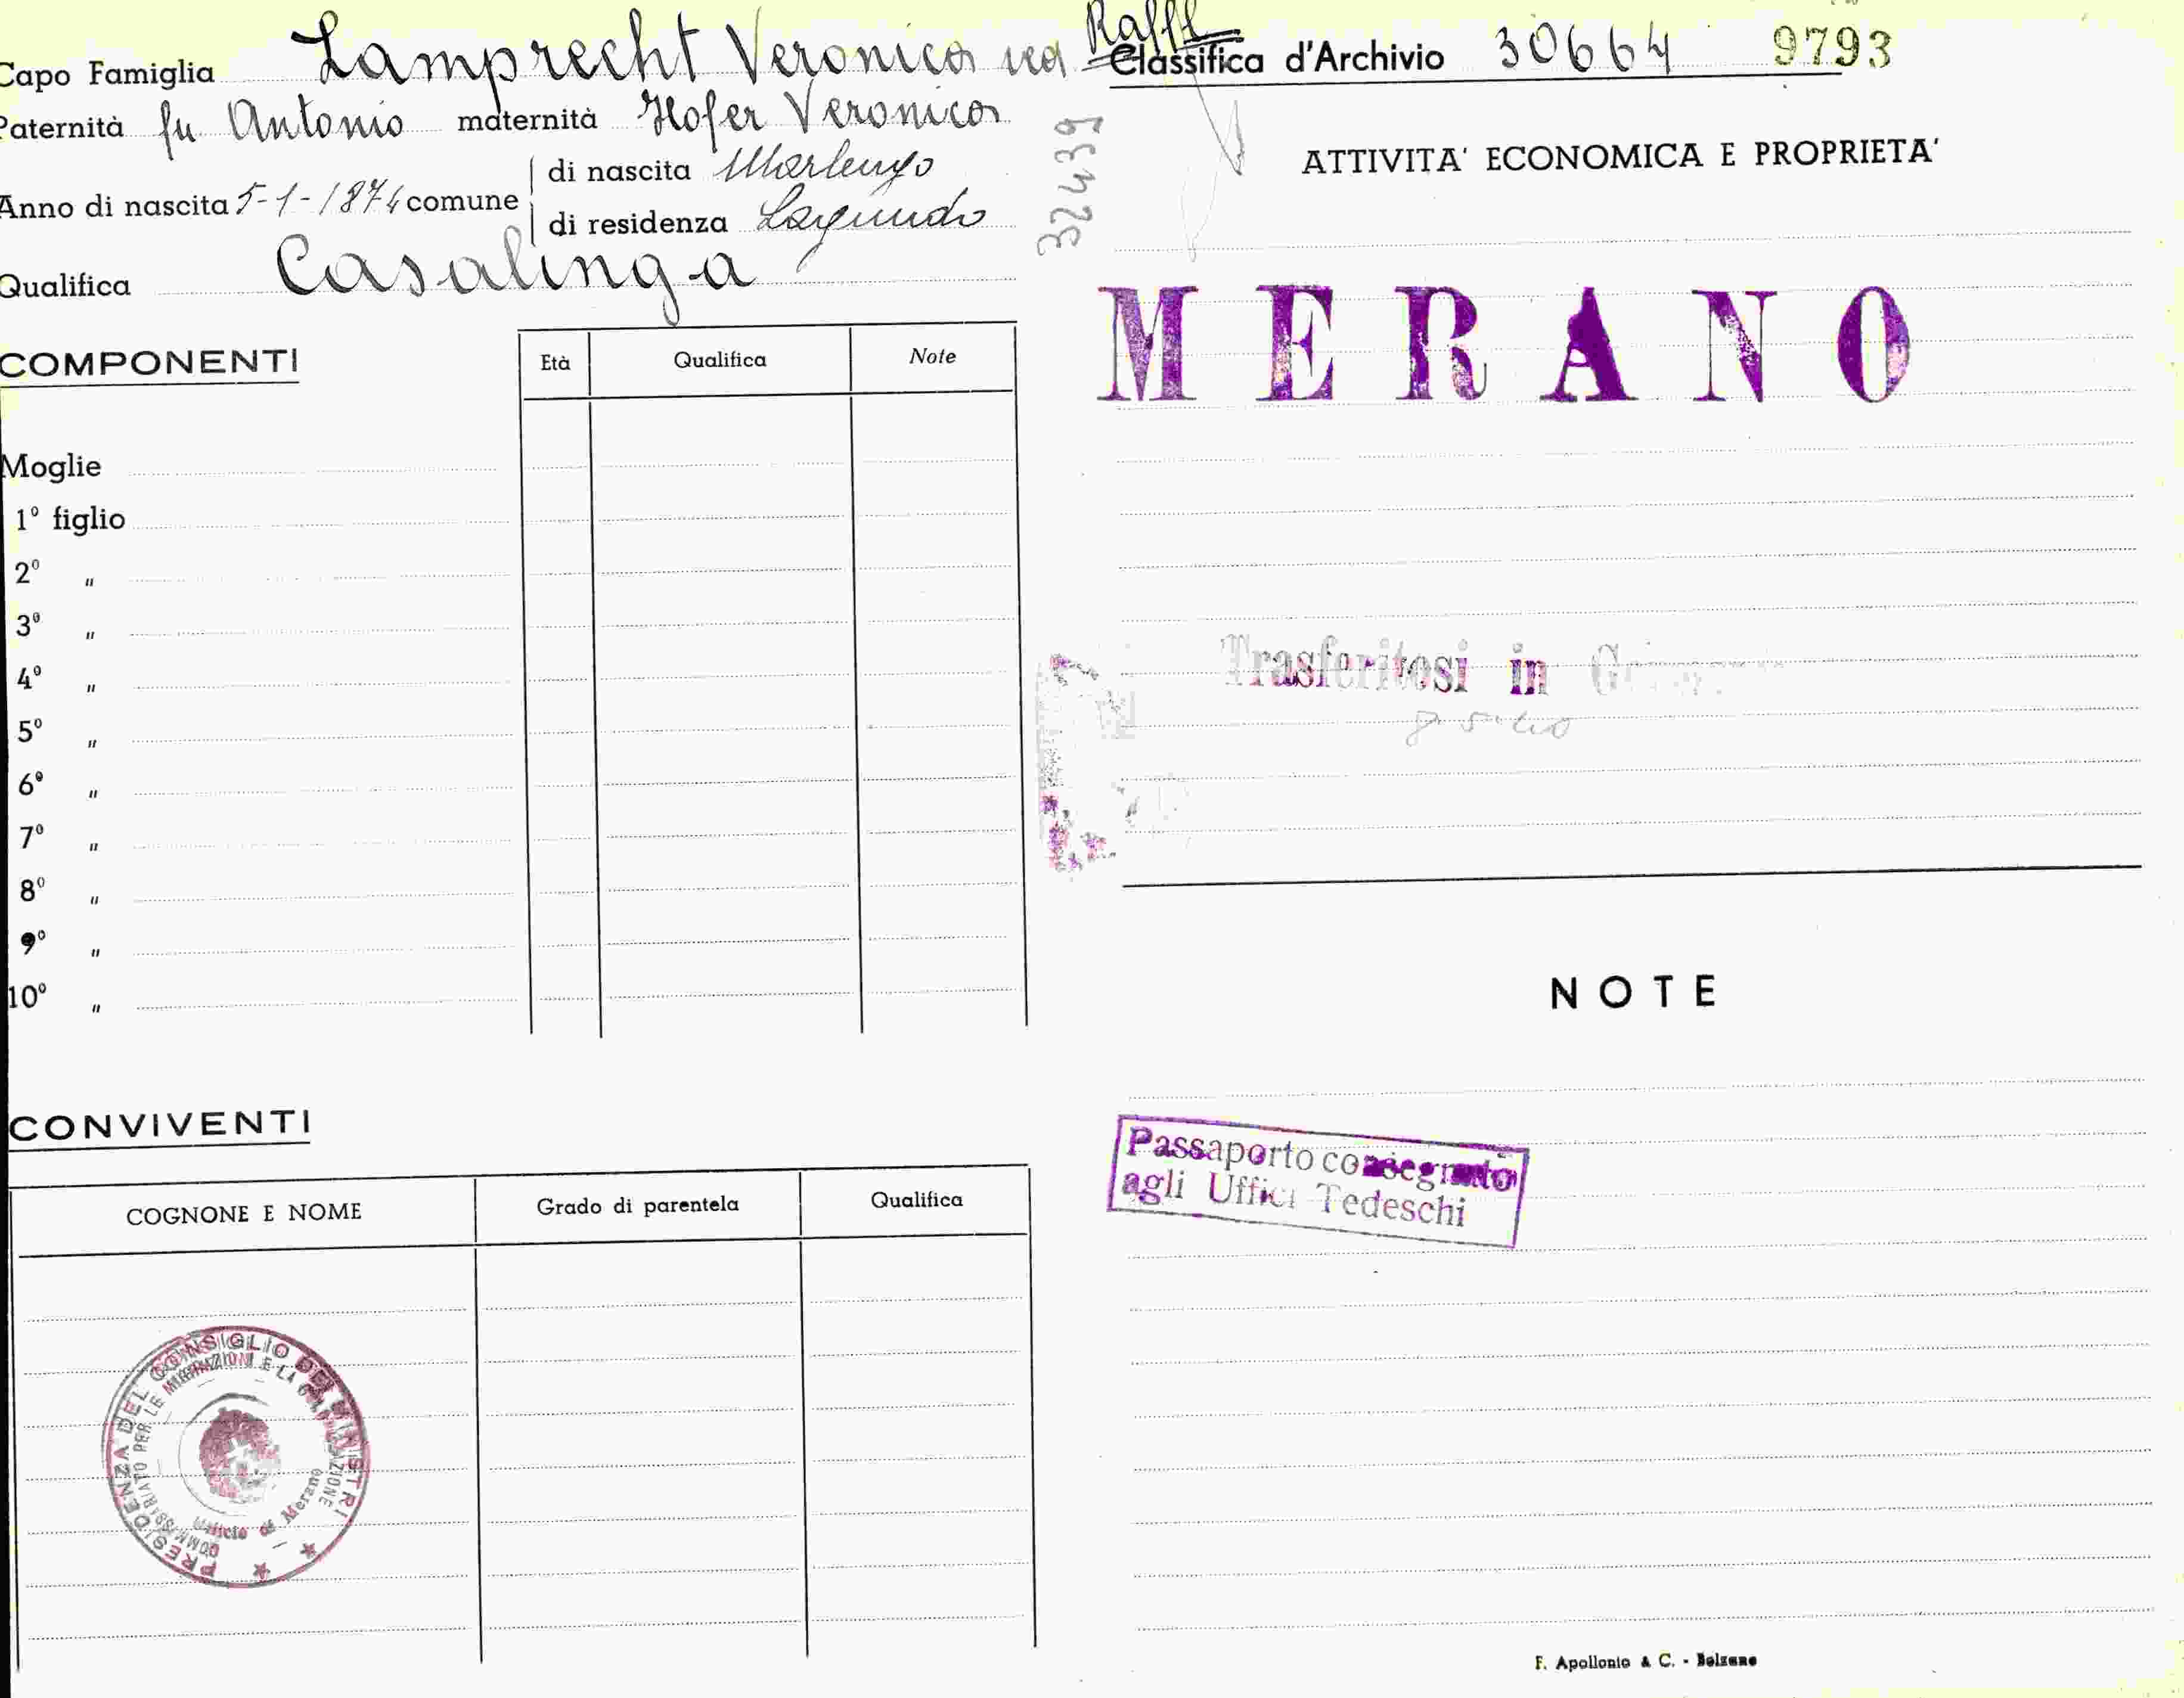 Capo Famiglia Lamprecht Veronica ved Raffl
Paternità fu Antonio maternità Hofer Veronica
Anno di nascita 5-1-1874 comune di nascita Marlengo
di residenza Lagundo
Qualifica Casalinga
COMPONENTI
Età Qualifica Note
Moglie
1° figlio
2° "
3° "
4° "
5° "
6° "
7° "
8° "
9° "
10° "
CONVIVENTI
COGNONE E NOME Grado di parentela Qualifica
PRESIDENZA DEL CONSIGLIO DEI MINISTRI
COMMISSARIATO PER LE MIGRAZIONI E LA COLONIZZAZIONE
Ufficio di Merano
Classifica d'Archivio 30664 9793
32439
ATTIVITA' ECONOMICA E PROPRIETA'
MERANO
Trasferitosi in
NOTE
Passaporto consegnato
agli Uffici Tedeschi
F. Apollonio & C. - Bolzano